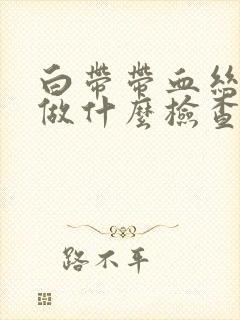 白帶帶血絲
做什麼檢查
路不平